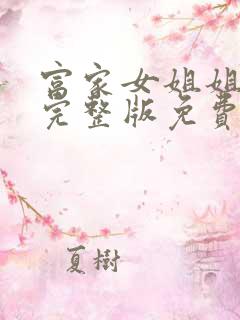 富家女姐姐
完整版免费
夏樹